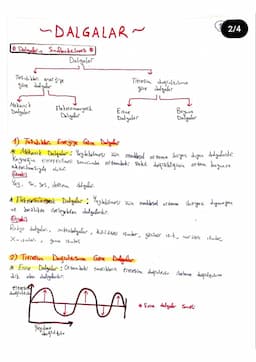 ~DALGALAR~
2/4
* Dalgaların Sınıflandırılması *
Dalgalar
Taşıdıkları enerjiye Titreşim doğrultusuna
göre dalgalar göre dalgalar
Mekanik Elektromanyetik Enine Boyuna
Dalgalar Dalgalar Dalgalar Dalgalar
1) Taşıdıkları Enerjiye Göre Dalgalar
* Mekanik Dalgalar: Yayılabilmesi için maddesel ortama ihtiyaç duyan dalgalardır.
Yay, su, ses, deprem dalgaları.
* Elektromanyetik Dalgalar: Yayılabilmesi için maddesel ortama ihtiyaç duymayan
ve boşlukta dalgalardır.
Radyo dalgaları, mikrodalgalar, kızılötesi ışınlar, görünür ışık, morötesi ışınlar,
X-ışınları, gama ışınları
2) Titreşim Doğrultusuna Göre Dalgalar
* Enine Dalgalar: titreşim doğrultusu ilerleme doğrultusuna
dik olan dalgalardır.
titreşim
doğrultusu
* Enine dalgalar
Yayılma
doğrultusu